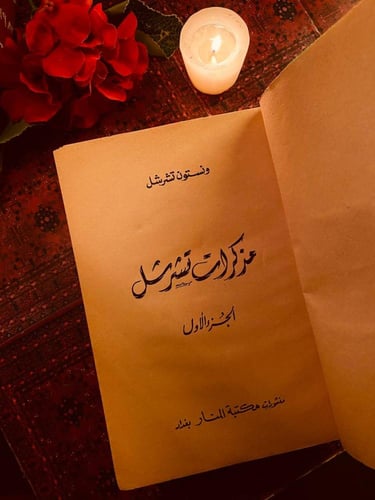 ونستون تشرشل
مذكرات تشرشل
الجزء الأول
منشورات مكتبة المنار بغداد